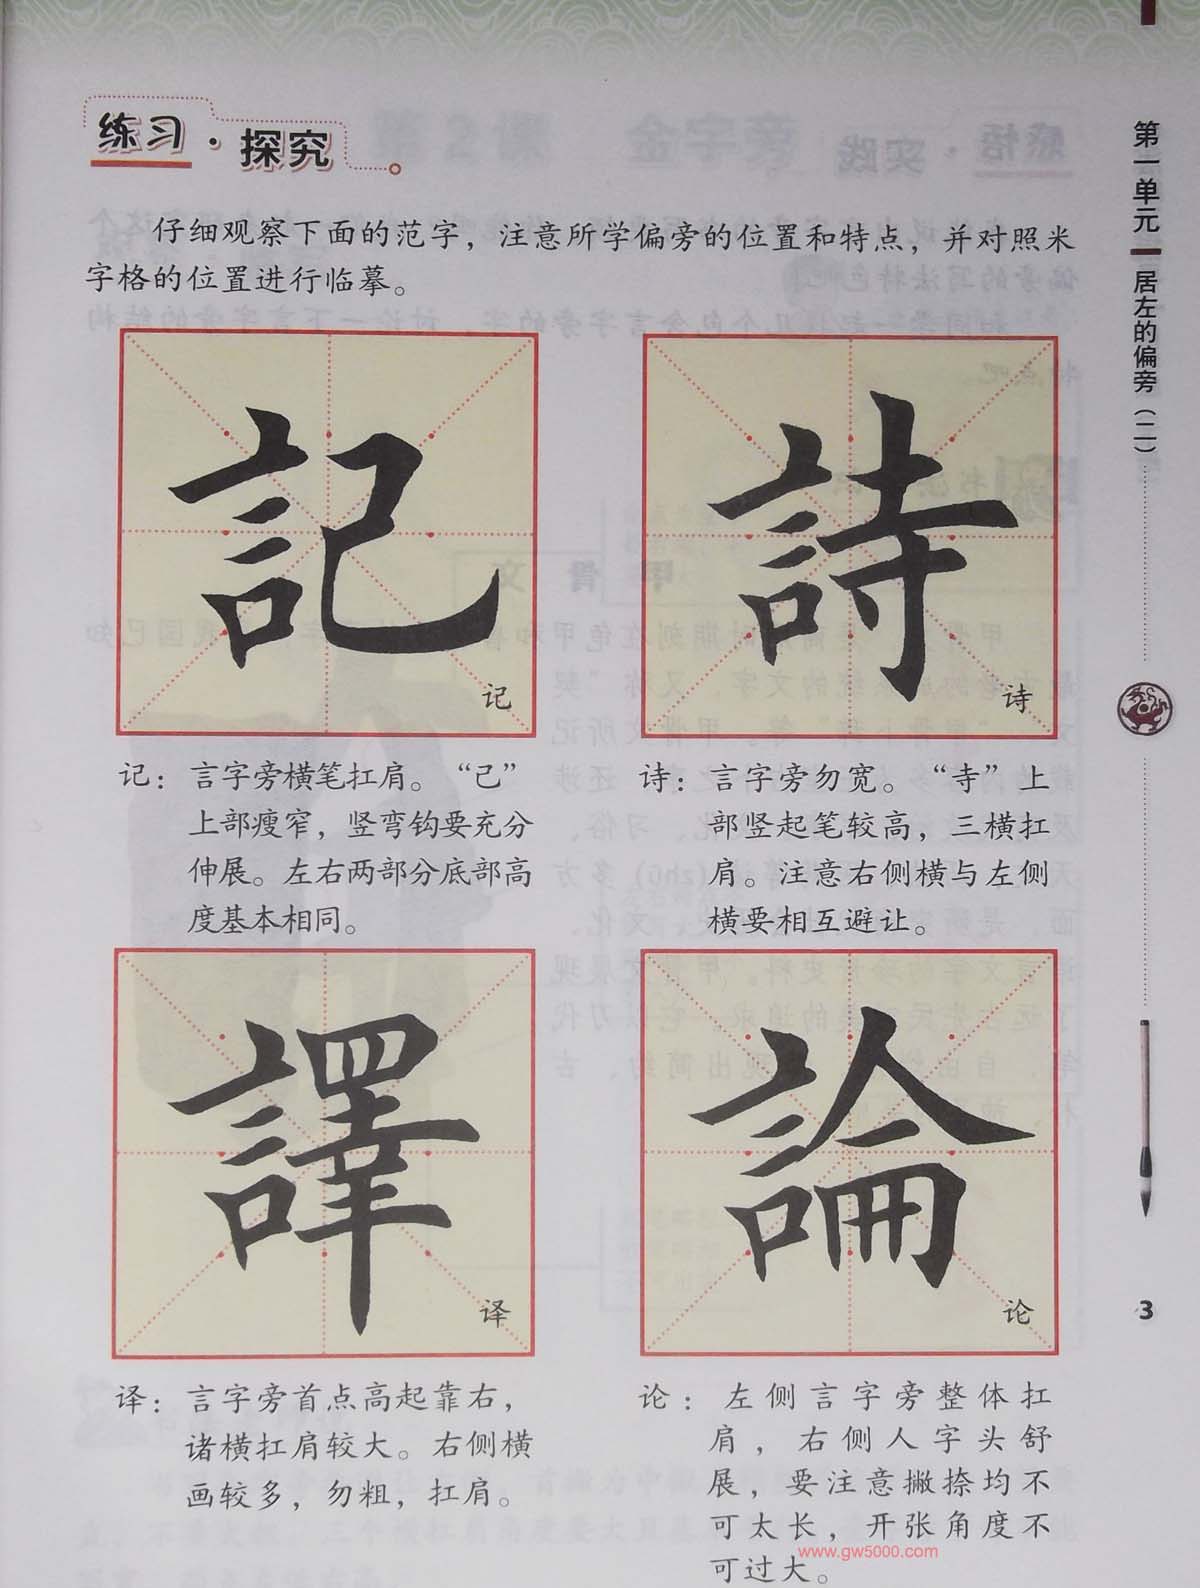 练习·探究
仔细观察下面的范字，注意所学偏旁的位置和特点，并对照米
字格的位置进行临摹。
記
记
詩
诗
记：言字旁横笔扛肩。“己”
上部瘦窄，竖弯钩要充分
伸展。左右两部分底部高
度基本相同。
诗：言字旁勿宽。“寺”上
部竖起笔较高，三横扛
肩。注意右侧横与左侧
横要相互避让。
譯
译
論
论
译：言字旁首点高起靠右，
诸横扛肩较大。右侧横
画较多，勿粗，扛肩。
论：左侧言字旁整体扛
肩，右侧人字头舒
展，要注意撇捺均不
可太长，开张角度不
可过大。
第一单元 居左的偏旁（二）
3
www.gw5000.com